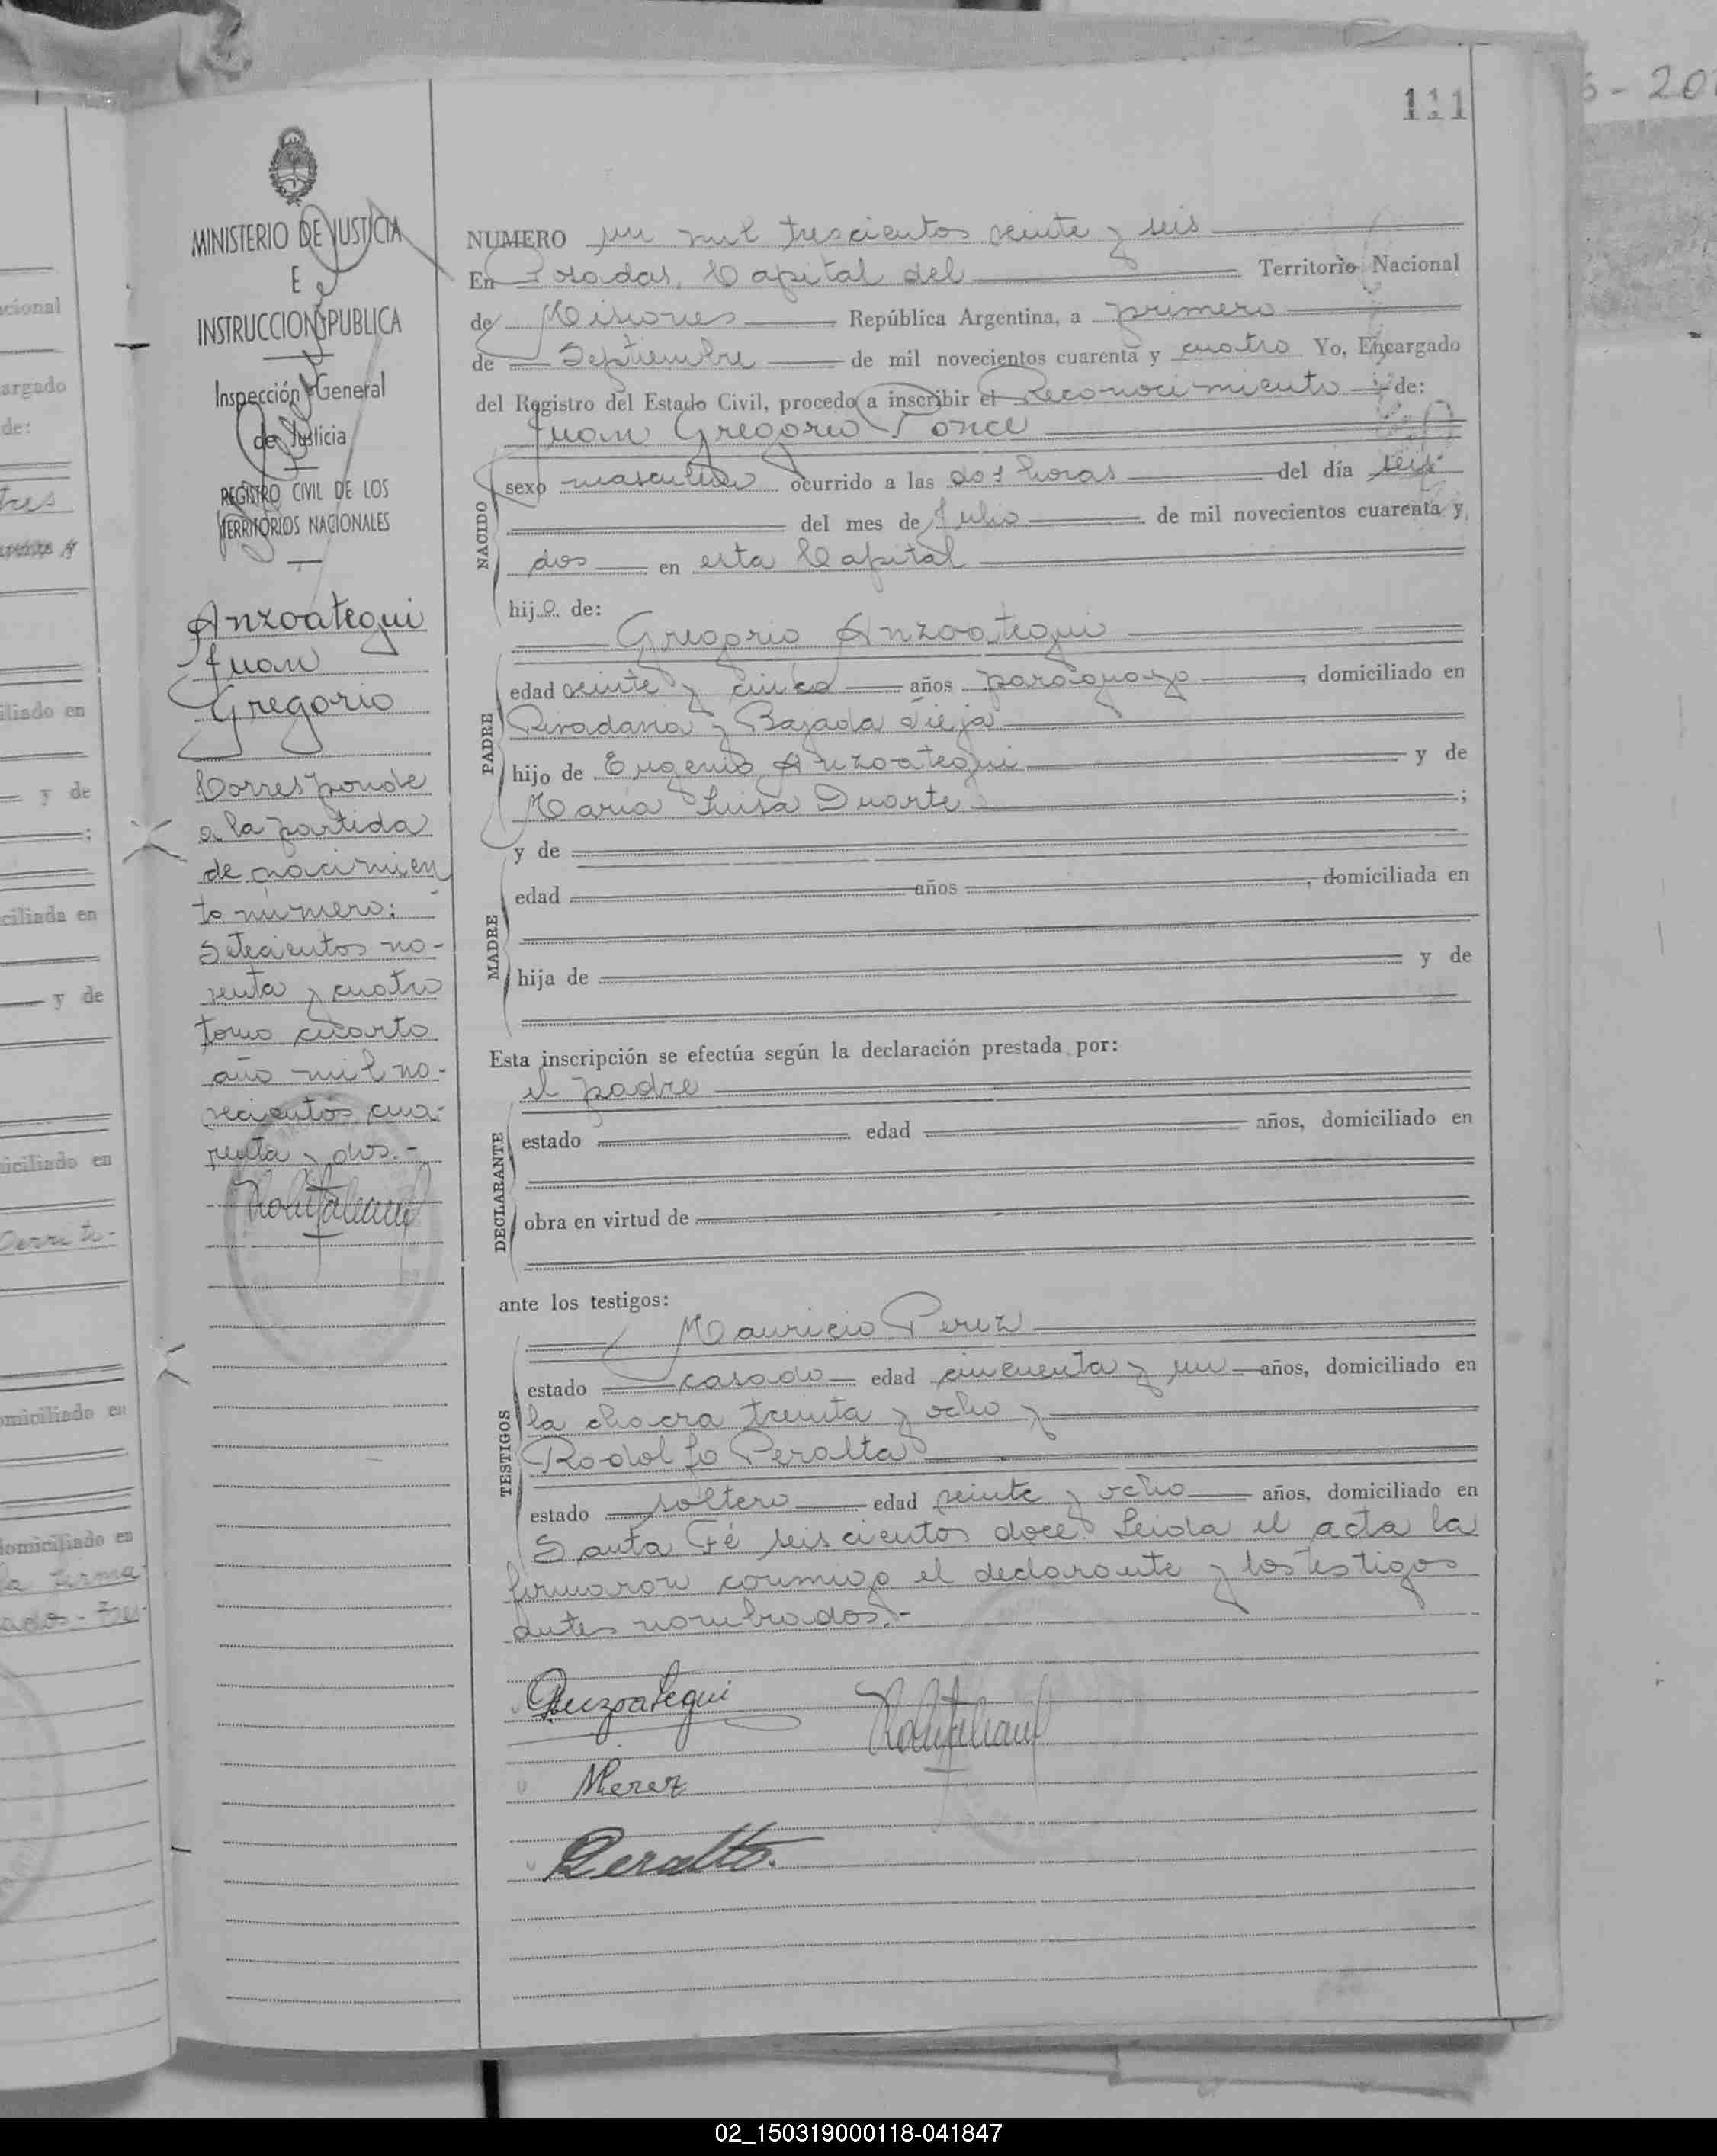 111
MINISTERIO DE JUSTICIA
E
INSTRUCCION PUBLICA
Inspección General
de Justicia
REGISTRO CIVIL DE LOS
TERRITORIOS NACIONALES
Anzoategui
Juan
Gregorio
Corresponde
a la partida
de nacimien
to número:
Setecientos no-
venta y cuatro
tomo cuarto
año mil no-
vecientos cua-
renta y dos.-
NUMERO un mil trescientos veinte y seis
En Posadas, Capital del Territorio Nacional
de Misiones República Argentina, a primero
de Septiembre de mil novecientos cuarenta y cuatro Yo, Encargado
del Registro del Estado Civil, procedo a inscribir el Reconocimiento de:
Juan Gregorio Ponce
NACIDO
sexo masculino ocurrido a las dos horas del día seis
del mes de Julio de mil novecientos cuarenta y
dos en esta Capital
hijo de:
Gregorio Anzoategui
PADRE
edad veinte y cinco años paraguayo, domiciliado en
Rivadavia y Bajada Vieja
hijo de Eugenio Anzoategui y de
Maria Luisa Duarte;
y de
MADRE
edad años, domiciliada en
hija de y de
Esta inscripción se efectúa según la declaración prestada por:
el padre
DECLARANTE
estado edad años, domiciliado en
obra en virtud de
ante los testigos:
Mauricio Perez
TESTIGOS
estado casado edad cincuenta y un años, domiciliado en
la chacra treinta y ocho y
Rodolfo Peralta
estado soltero edad veinte y ocho años, domiciliado en
Santa Fé seiscientos doce. Leida el acta la
firmaron conmigo el declarante y los testigos
antes nombrados.-
Anzoategui
MPerez
Peralta.
cional
argado
de:
tres
iliado en
y de
;
ciliada en
y de
iciliado en
omiciliado en
domiciliado en
la firma
02_150319000118-041847